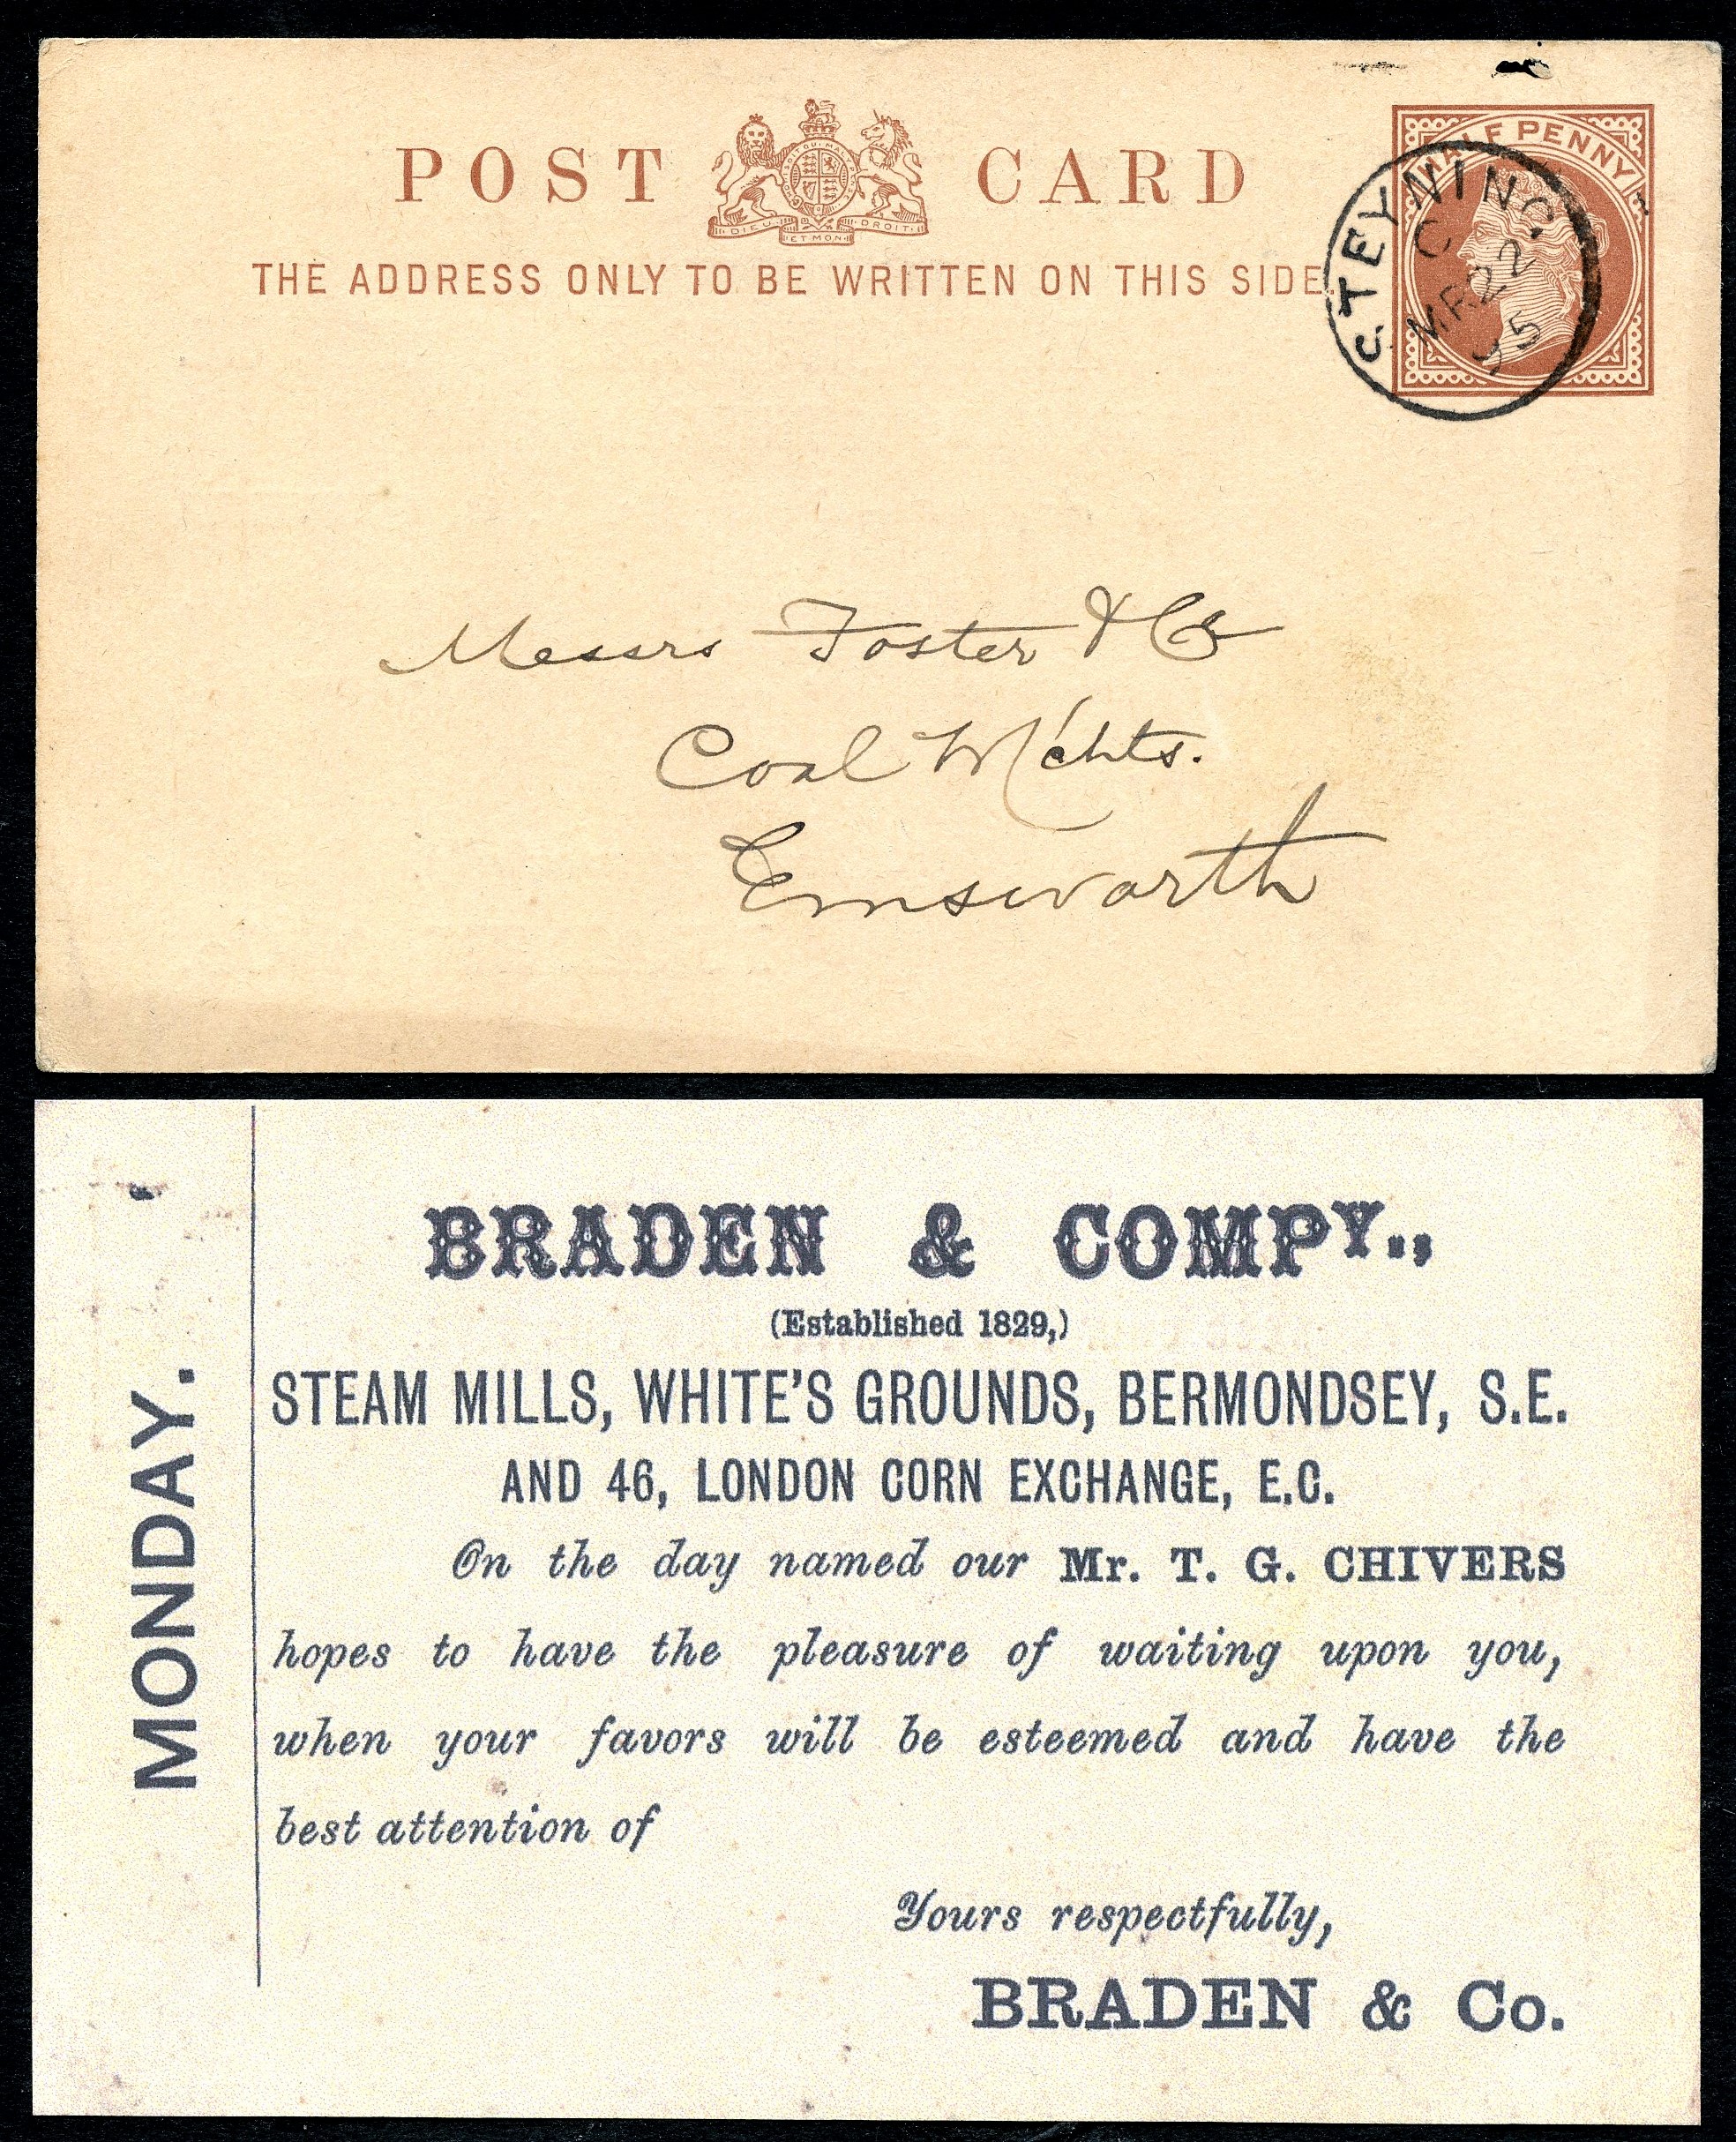 POST CARD
HONI SOIT QUI MAL Y PENSE
DIEU ET MON DROIT
THE ADDRESS ONLY TO BE WRITTEN ON THIS SIDE.
HALFPENNY
STEYNING
C
MR 22
95
Messrs Foster & Co
Coal M'chts.
Emsworth
MONDAY.
BRADEN & COMPY.,
(Established 1829,)
STEAM MILLS, WHITE'S GROUNDS, BERMONDSEY, S.E.
AND 46, LONDON CORN EXCHANGE, E.C.
On the day named our Mr. T. G. CHIVERS
hopes to have the pleasure of waiting upon you,
when your favors will be esteemed and have the
best attention of
Yours respectfully,
BRADEN & Co.